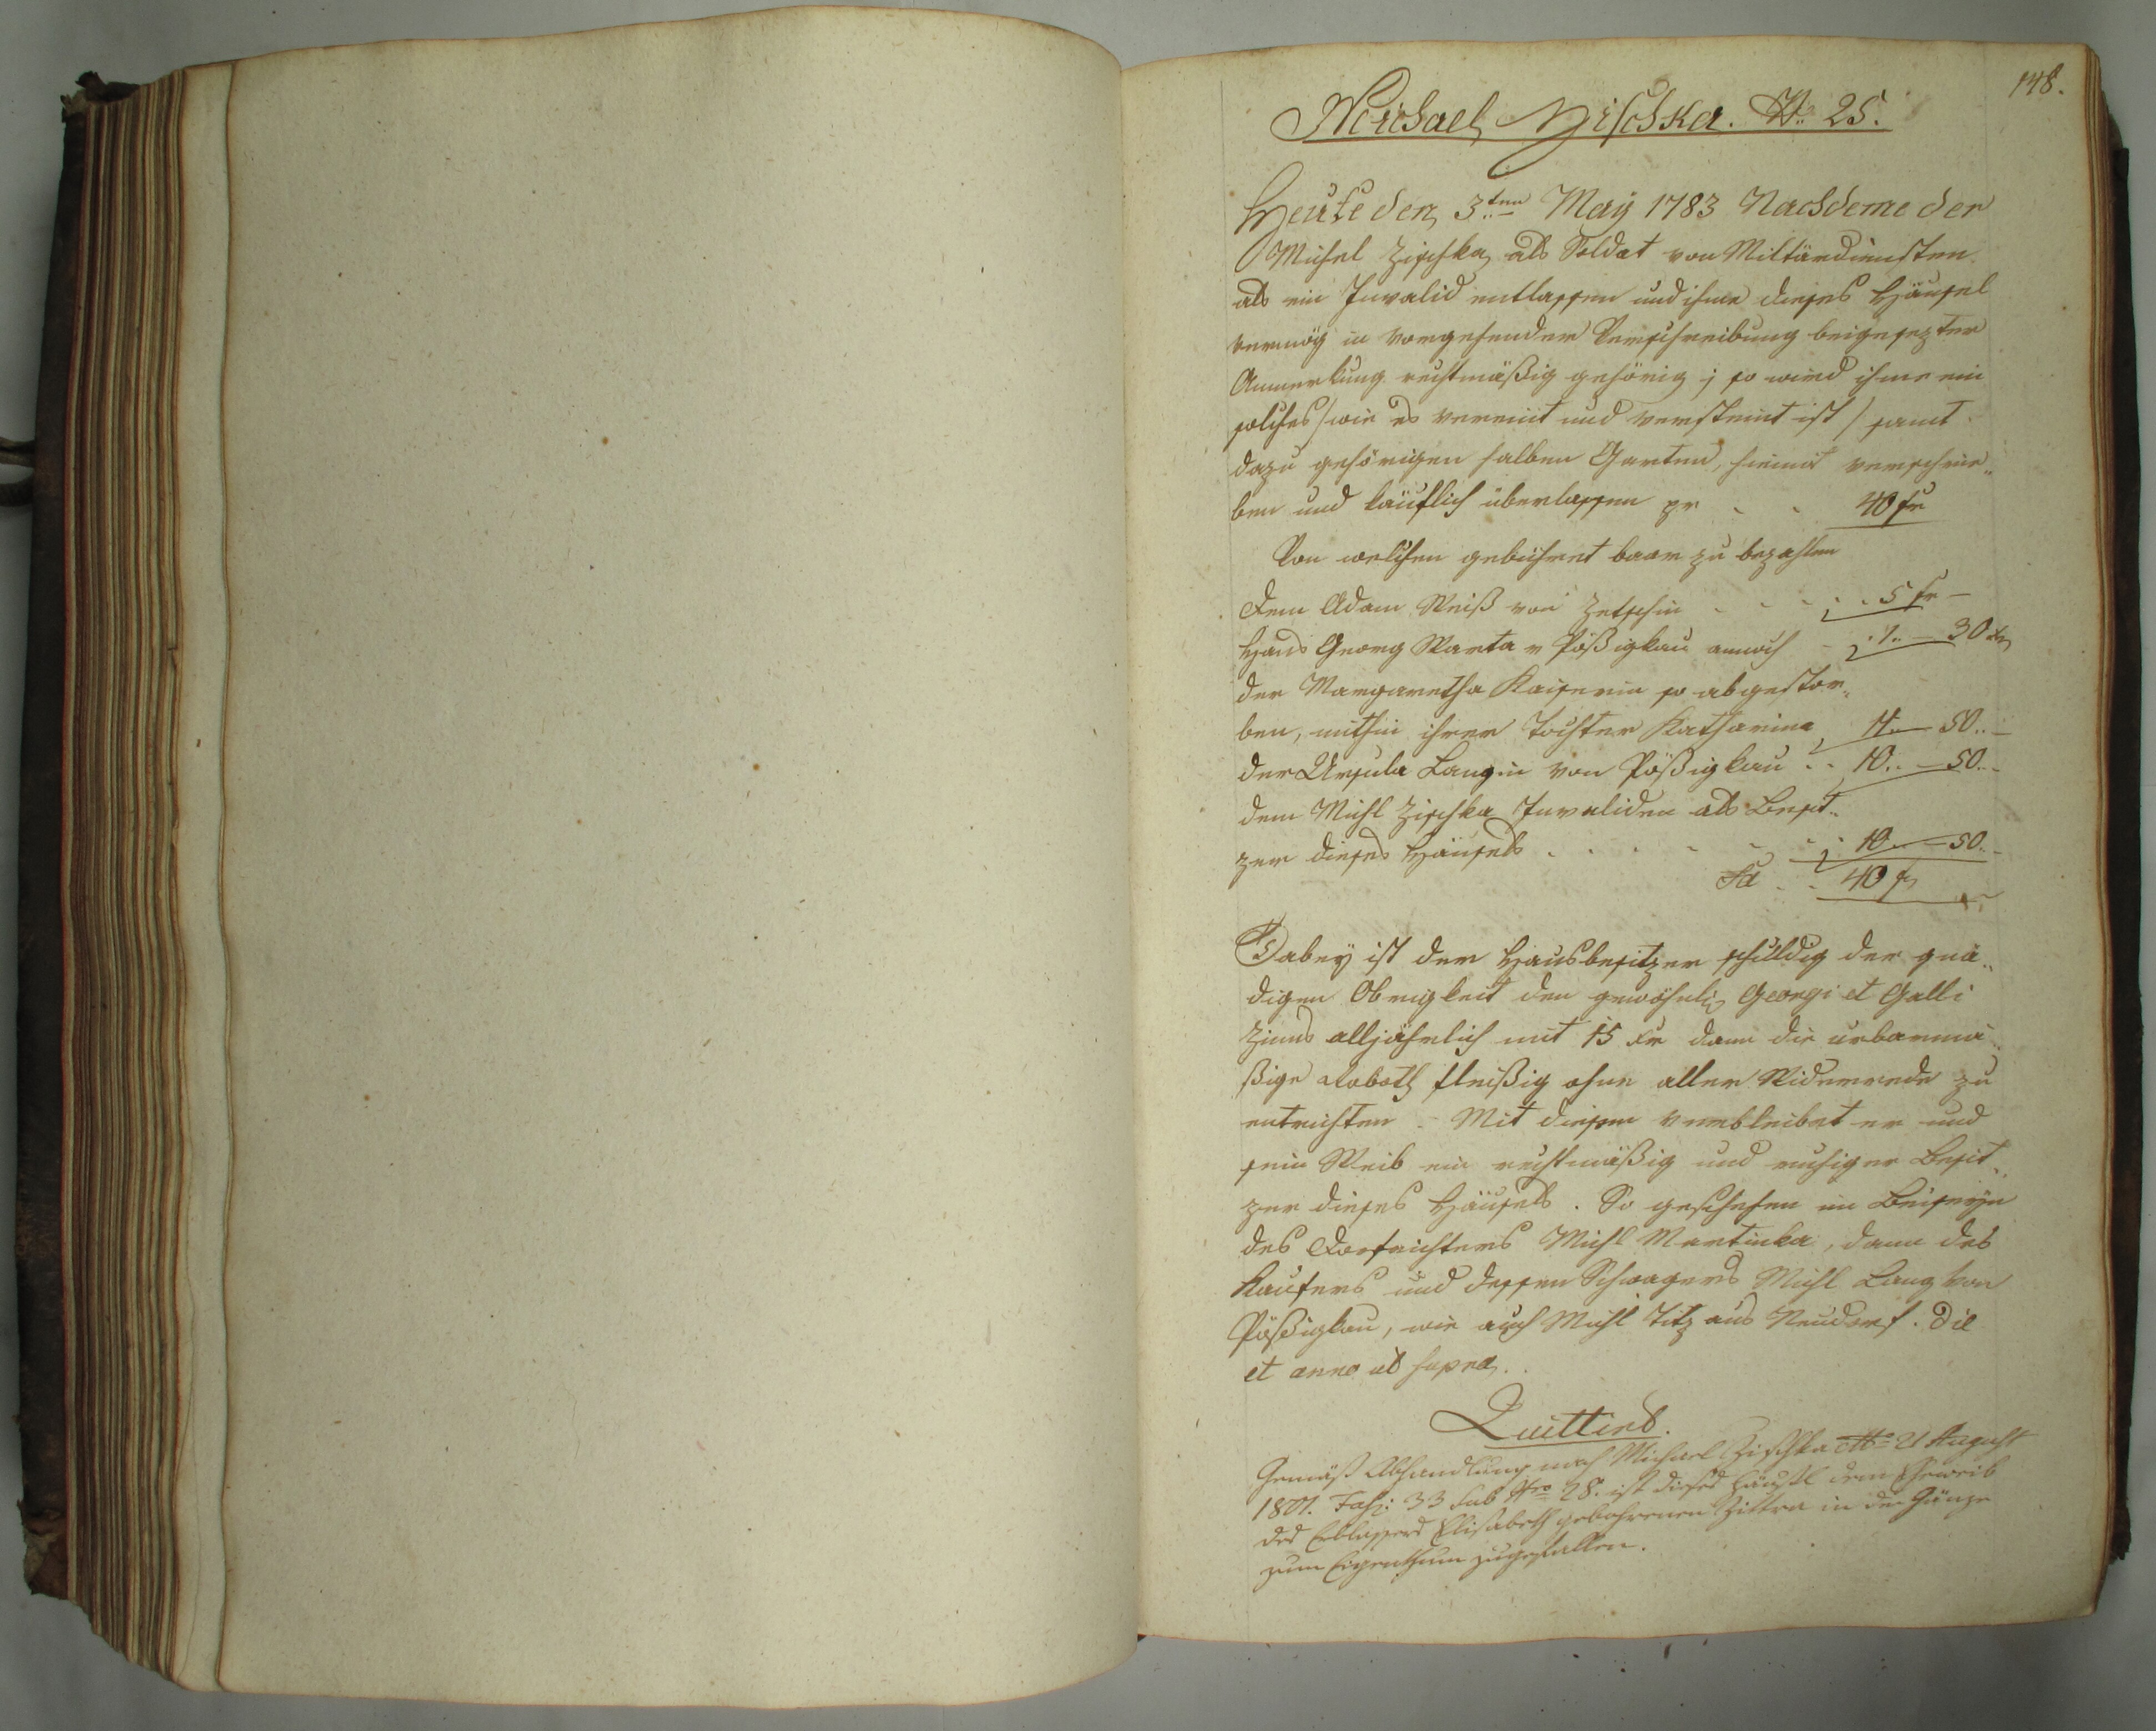 148.
Michael Zischka. No 25.
Heute den 3ten May 1783 Nachdeme der
Michel Zischka als Soldat von Militärdiensten
als ein Invalid entlassen und ihme dieses Häusel
vermög in vorgehender Verschreibung beigesezter
Anmerkung rechtmäßig gehörig; so wird ihme ein
solches /wie es verreint und versteint ist/ samt
dazu gehörigen halben Garten, hiemit verschrie„
ben und käuflich überlassen pr - - 40 fr
Von welchen gebühret baar zu bezahlen
dem Adam Weiß von Zetschin - - - - 5 fr -
Hans Georg Warta v Pößigkau annoch - .1.. - 30 xr
der Margaretha Kaiserin so abgestor„
ben, mithin ihrer Tochter Katharina 11.. - 50.. -
der Ursula Langin von Pößigkau - - 10.. - 50.. -
dem Michl Zischka Invaliden als Besit„
zer dieses Häusels . . . - - - 10.. - 50.. -
40 fr
Dabey ist der Hausbesitzer schuldig der gnä„
digen Obrigkeit den gewöhnlich Georgi et Galli
Zinns alljährlich mit 15 xr dann die urbarmä„
ßige Roboth fleißig ohne aller Widerrede zu
entrichten. Mit diesem verbleibet er und
sein Weib ein rechtmäßig und ruhiger Besit„
zer dieses Häusels. So geschehen im Beiseyn
des Dorfrichters Michl Martinka, dann des
Kaufers und dessen Schwagers Michl Lang von
Pößigkau, wie auch Michl Titz aus Neudorf. Die
et anno ut supra.
Quittirt.
Gemäß Abhandlung nach Michael Zischka dto 21 August
1801. Fasz: 33 sub Nro 28. ist dieses Häusl dem Eheweib
des Erblassers Elisabeth gebohrenen Zittra in der Gänze
zum Eigenthum zugefallen.